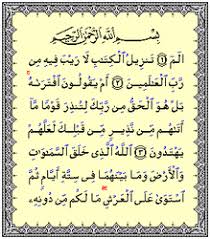 بِسْمِ ٱللَّهِ ٱلرَّحْمَٰنِ ٱلرَّحِيمِ
الٓمٓ ١ تَنزِيلُ ٱلْكِتَٰبِ لَا رَيْبَ فِيهِ مِن
رَّبِّ ٱلْعَٰلَمِينَ ٢ أَمْ يَقُولُونَ ٱفْتَرَىٰهُ
بَلْ هُوَ ٱلْحَقُّ مِن رَّبِّكَ لِتُنذِرَ قَوْمًا مَّآ
أَتَىٰهُم مِّن نَّذِيرٍ مِّن قَبْلِكَ لَعَلَّهُمْ
يَهْتَدُونَ ٣ ٱللَّهُ ٱلَّذِى خَلَقَ ٱلسَّمَٰوَٰتِ
وَٱلْأَرْضَ وَمَا بَيْنَهُمَا فِى سِتَّةِ أَيَّامٍ ثُمَّ
ٱسْتَوَىٰ عَلَى ٱلْعَرْشِ مَا لَكُم مِّن دُونِهِۦ